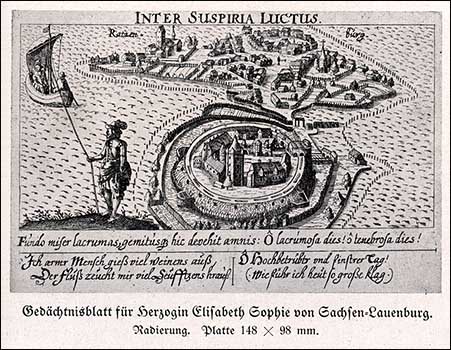 INTER SUSPIRIA LUCTUS.
Ratzen burg
Fundo miser lacrumas, gemitusq; hic devehit amnis: Ô lacrumosa dies! ô tenebrosa dies!
Ich armer Mensch gieß viel weinens auß, Ô Hochbetrübter und finstrer Tag!
Der Fluß zeucht mir viel Seufftzens krauß (Wie führ ich heut so große klag.)
Gedächtnisblatt für Herzogin Elisabeth Sophie von Sachsen-Lauenburg.
Radierung. Platte 148 × 98 mm.